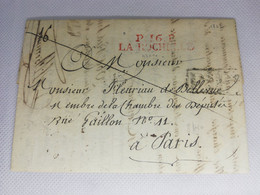 P.16.P
LA ROCHELLE
A Monsieur
Monsieur Fleuriau de Bellevue
Membre de la Chambre des Députés
Rue Gaillon N° 11
à Paris.